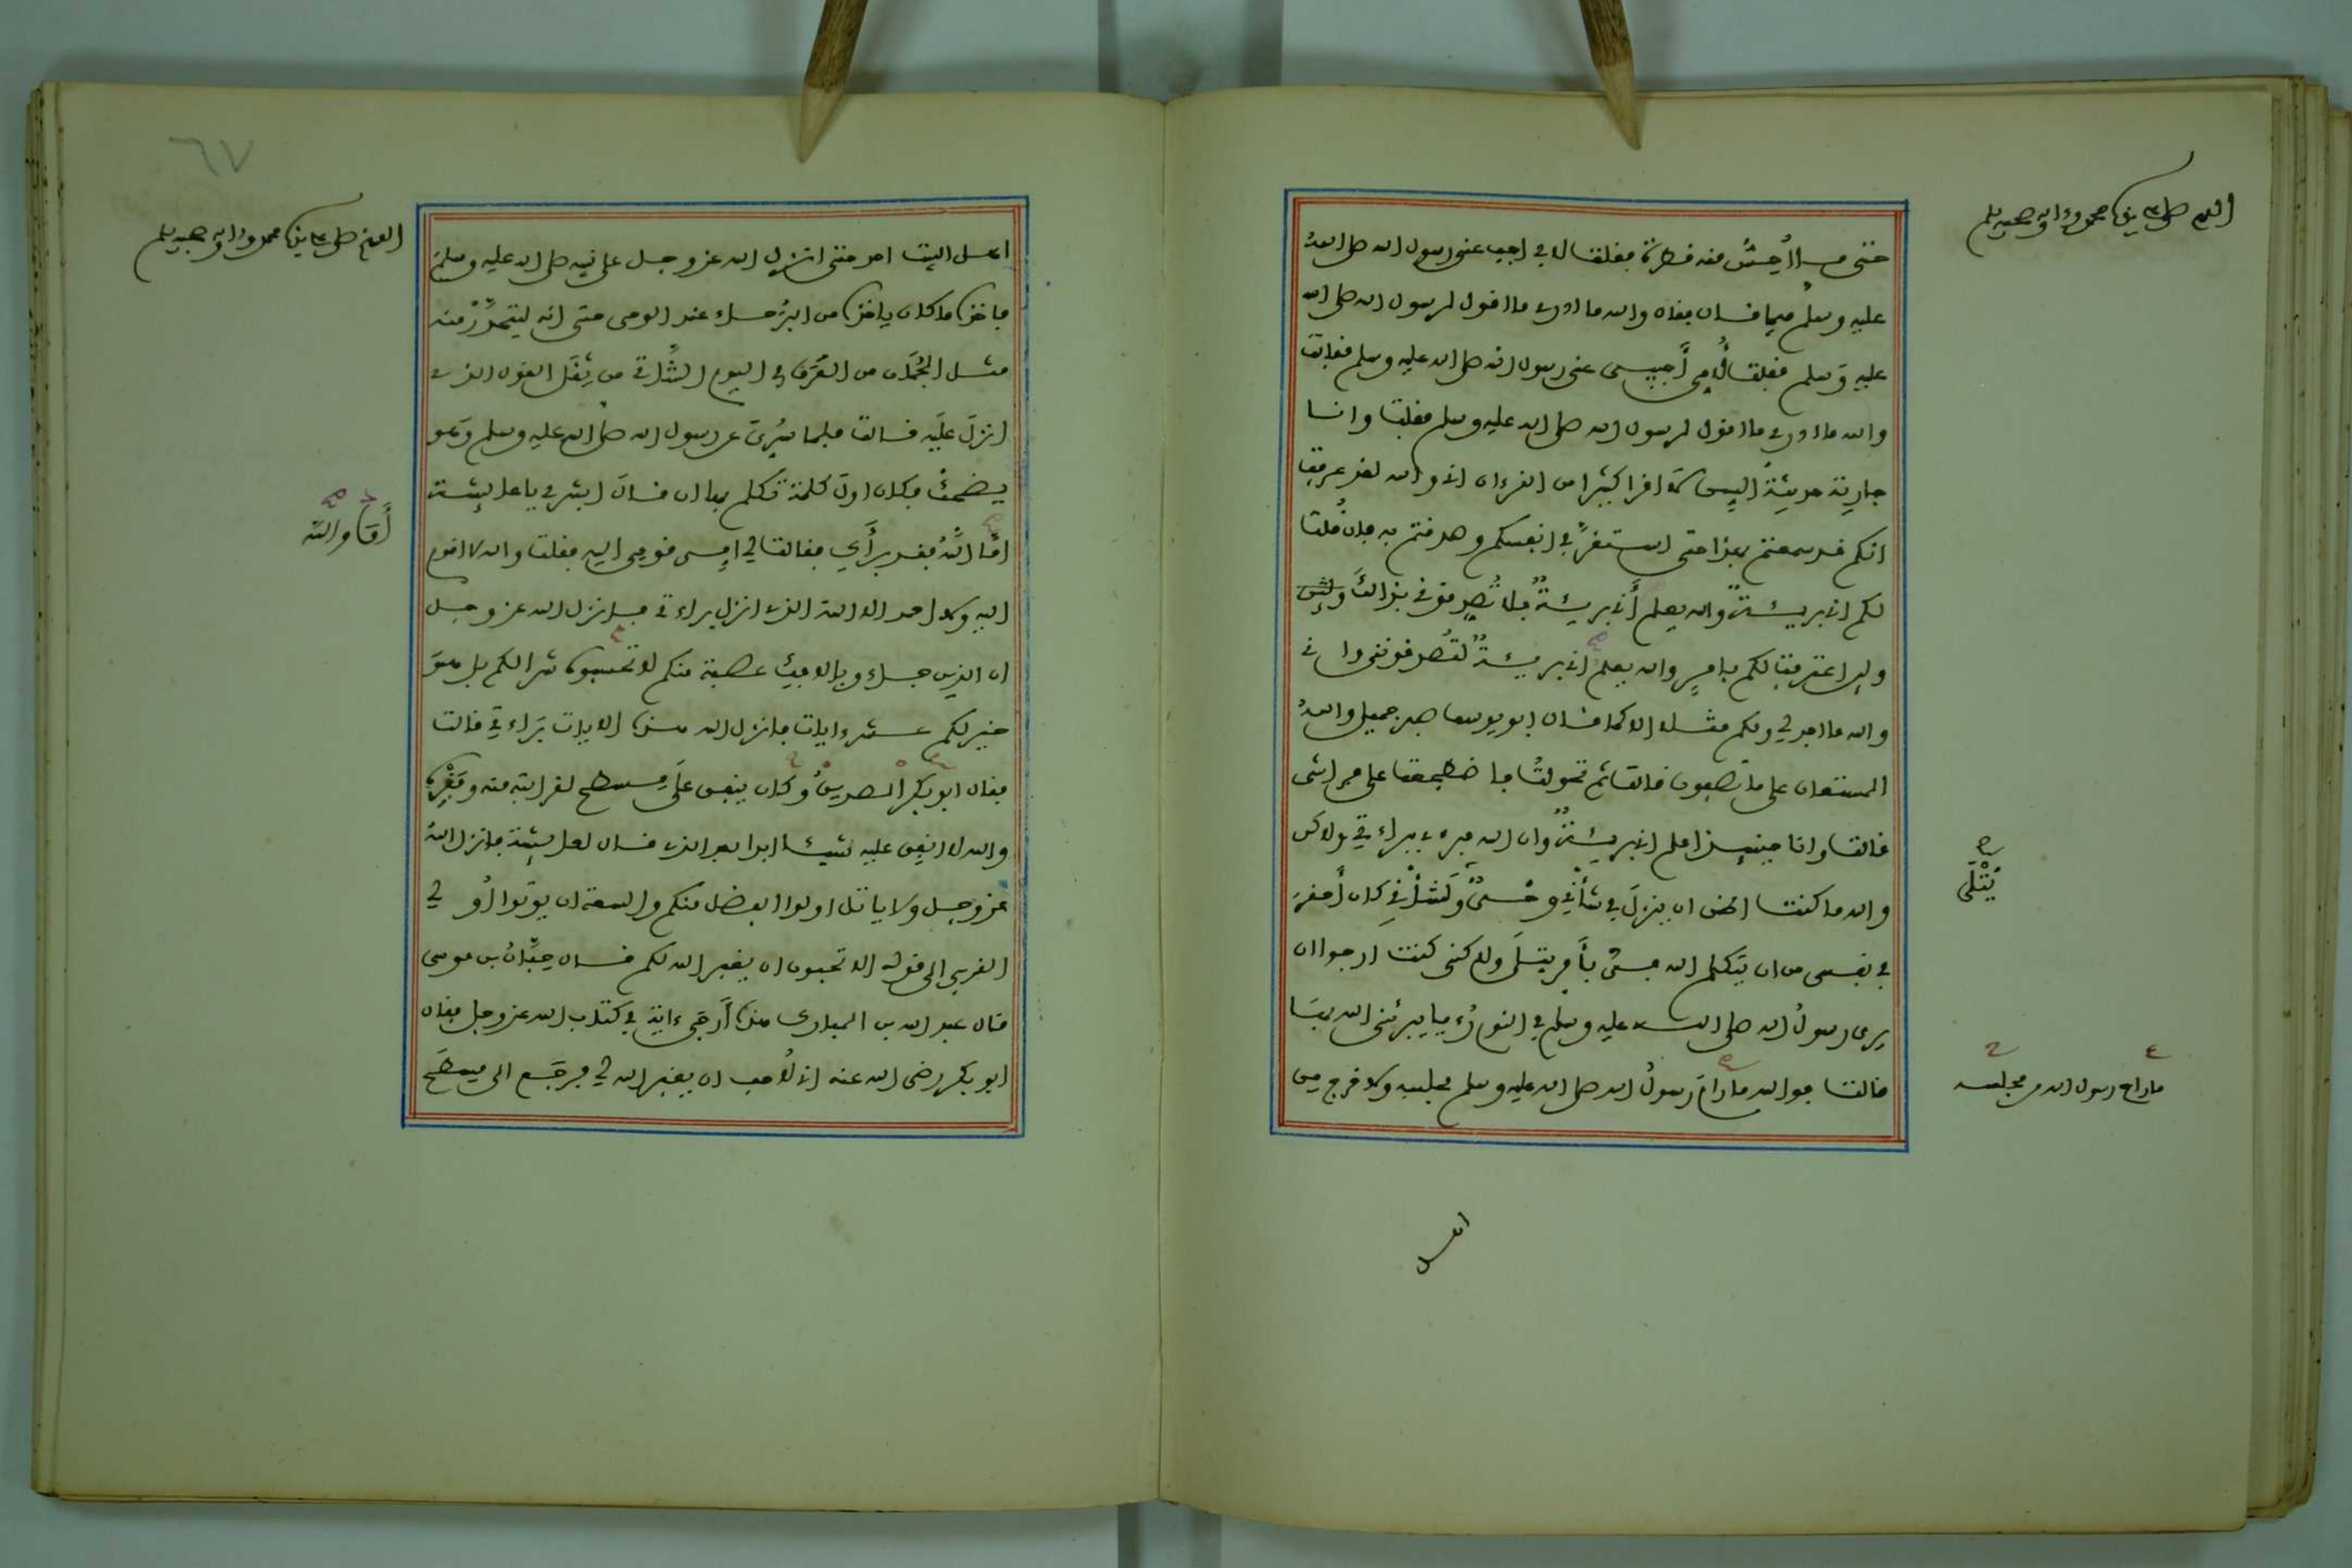 اللهم صل على سيدنا محمد وءاله وصحبه وسلم
حتى ما أُحِسُّ منه قطرة فقلت لابي اجب عني رسول الله صلى الله
عليه وسلم فيما قال فقال والله ما ادري ما اقول لرسول الله صلى الله
عليه وَسلم فقلت لأُمي أَجيبي عني رسول الله صلى الله عليه وسلم فقالت
والله ما ادري ما اقول لرسول الله صلى الله عليه وسلم فقلت وانا
جارية حديثةُ السِن لا اقرا كثيرا من القرءان اني والله لقد عرفت
انكم قد سمعتم بهذا حتى استقرَّ في انفسكم وصدقتم به فإن قُلت
لكم اني بريئة والله يعلم أَني بريئةٌ فلا تُصدقوني بذالك ولئن
ولين اعترفت لكم بامرٍ والله يعلم اني بريئةٌ لتُصدقونني واني
والله ما اجد لي ولكم مثلا الا كما قال ابو يوسف صبر جميل واللهُ
المستعان على ما تصفون قالت ثم تحولتُ فاضطجعت على فراشي
قالت وانا حينئذ اعلم اني بريئةٌ وان الله مبرءي ببراءتي ولاكن
والله ما كنت اظن ان ينزلَ في شأني وحيٌ ولَشأني كان أَحقرَ
يُتْلَى
في نفسي من ان يتكلم الله فيَّ بأَمر يتلَى ولاكني كنت ارجوا ان
يرى رسولُ الله صلى الله عليه وسلم في النوم رُءيا يبرئني الله بهَا
قالت فوالله ما رامَ رَسولُ الله صلى الله عليه وسلم مجلسه ولا خرج من
ما رام رسول الله مجلسه
اهل
٦٧
اللهم صل على سيدنا محمد وءاله وصحبه وسلم
اهل البيت احد حتى انزل الله عز وجل على نبيه صلى الله عليه وسلم
فاخذه ما كان ياخذه من البُرَحاء عند الوحي حتى انه ليتحدَّرُ منه
مثل الجُمَان من العَرَق في اليوم الشَّاتي من ثِقَل القول الذي
انزلَ علَيه قالت فلما سُرِّيَ عن رسول الله صلى الله عليه وسلم وَهو
يضحكُ فكان اولَ كلمة تكلم بها ان قالَ ابشري يا عائِشة
أَمَّا واللَّه
امَّا اللَّهُ فقد برأَكِ فقالت لي امِي قومي اليه فقلت والله لا اقوم
اليه ولا احمد الا الله الذي انزل براءتي فانزل الله عز وجل
ان الذين جاءو بالافك عصبة منكم لا تحسبوه شرا لكم بل هوَ
خير لكم عشر ءايات فانزل الله هذه الايات بَراءتي قالت
فقال ابو بكر الصديقُ وكان ينفق علَى مِسطح لقرابته منه وفَقْرِه
والله لا انفِق عليه شيئا ابدا بعد الذي قال لعائِشة فانزل اللهُ
عز وجل ولا ياتل اولوا الفضل منكم والسعة ان يوتوا أُولي
القربى الى قوله الا تحبون ان يغفر الله لكم قال حِبَّانُ بن موسى
قال عبد الله بن المبارك هذه أَرجَى ءاية في كتاب الله عز وجل فقال
ابو بكر رضي الله عنه اني لأُحب ان يغفر الله لي فرجَع الى مِسطَحٍ